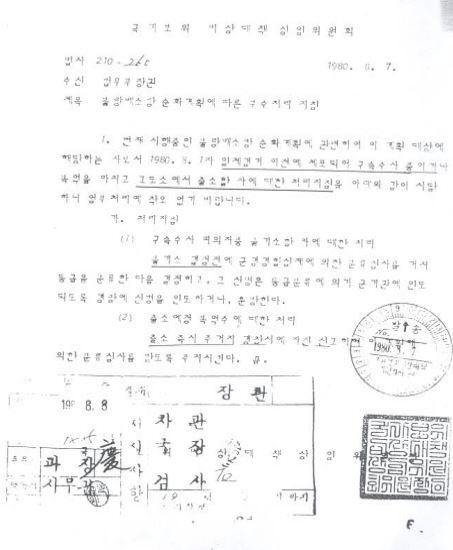 국가보위 비상대책 상임위원회
법사 210-265 1980. 8. 7.
수신 법무부장관
제목 불량배소탕 순화계획에 따른 구속처리 지침
1. 현재 시행중인 불량배소탕 순화계획에 관련하여 이 계획 대상에
해당하는 자로서 1980. 8. 1자 일제검거 이전에 체포되어 구속수사 중이거나
복역을 마치고 교도소에서 출소할 자에 대한 처리지침을 아래와 같이 시달
하니 업무처리에 착오 없기 바랍니다.
가. 처리지침
(1) 구속수사 피의자중 불기소할 자에 대한 처리
불기소 결정전에 군검경합심제에 의한 분류심사를 거쳐
등급을 분류한 다음 결정하고, 그 신병은 등급분류에 의거 군기관에 인도
되도록 경찰에 신병을 인도하거나, 훈방한다.
(2) 출소예정 복역수에 대한 처리
출소 즉시 주거지 경찰서에 자진 신고하여
의한 분류심사를 받도록 주지시킨다. 끝.
발송
No.
1980. 8. 7
198 8. 8
장관
차관
국장
검사
과장
상 대 책 상 임 위 원